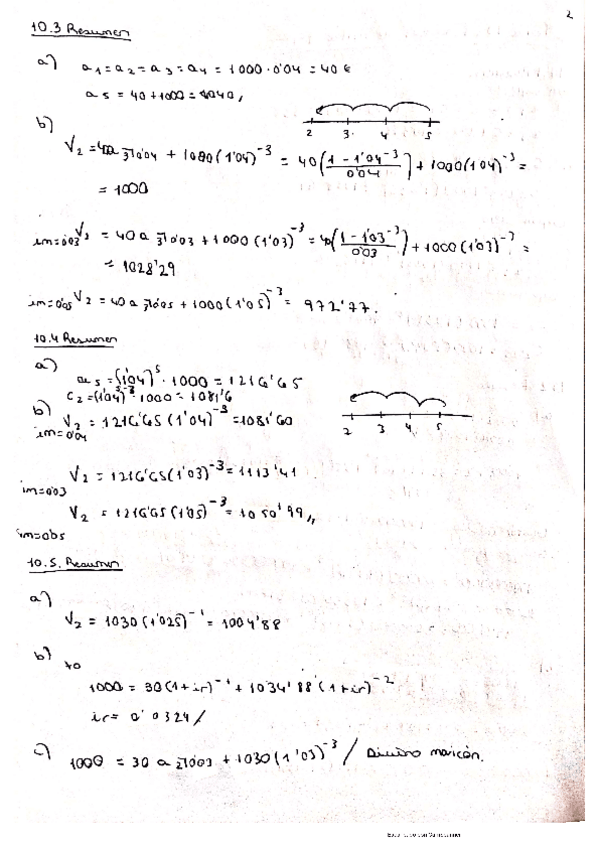 2
10.3 Resumen
a) a1 = a2 = a3 = a4 = 1000·0'04 = 40 €
a5 = 40 + 1000 = 1040,
b) V2 = 40a 3┐0'04 + 1000(1'04)^-3 = 40((1 - 1'04^-3)/0'04) + 1000(1'04)^-3 =
2 3 4 5
= 1000
im=0'03 V2 = 40a 3┐0'03 + 1000(1'03)^-3 = 40((1 - 1'03^-3)/0'03) + 1000(1'03)^-3 =
= 1028'29
im=0'05 V2 = 40a 3┐0'05 + 1000(1'05)^-3 = 972'77.
10.4 Resumen
a) a5 = (1'04)^5 · 1000 = 1216'65
1000 = 1081'6
b) V2 = 1216'65(1'04)^-3 = 1081'60
im=0'04
2 3 4 5
V2 = 1216'65(1'03)^-3 = 1113'41
im=0'03
V2 = 1216'65(1'05)^-3 = 1050'99,,
im=0'05
10.5. Resumen
a)
V2 = 1030(1'025)^-1 = 1004'88
b)
1000 = 30(1+ir)^-1 + 1034'88(1+ir)^-2
ir = 0'0324/
c) 1000 = 30a 0'03 + 1030(1'03)^-3 /